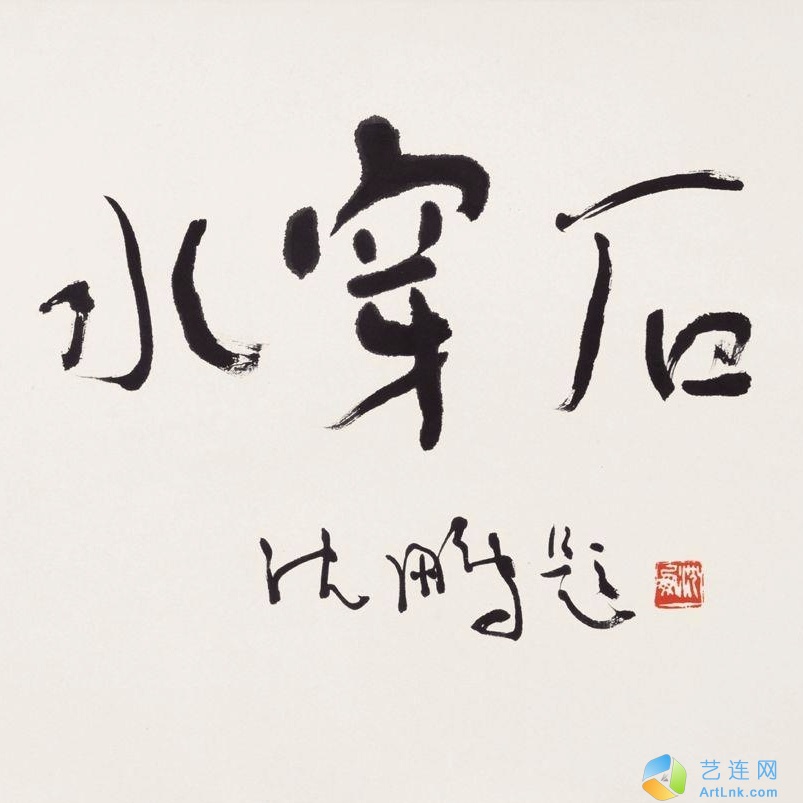 水穿石
沈鹏题
沈鹏
艺连网
ArtLnk.com